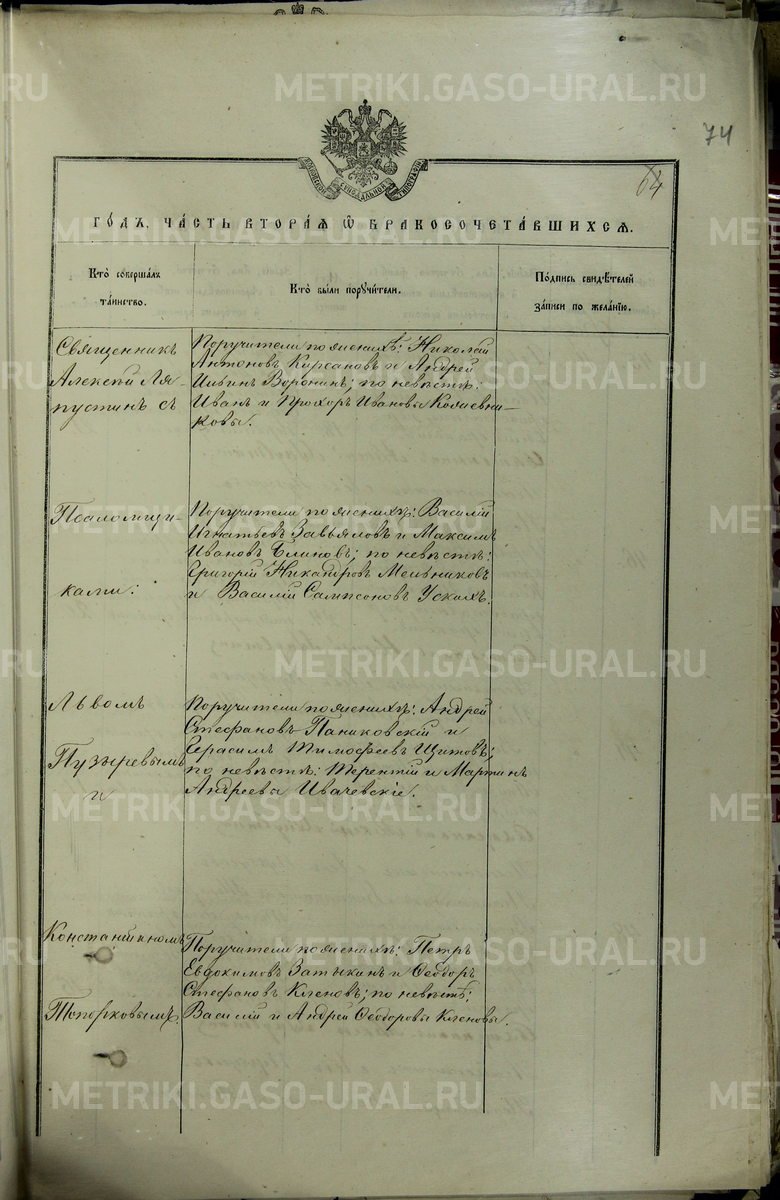 METRIKI.GASO-URAL.RU
74
64
МОСКОВСКОЙ СѴНОДАЛЬНОЙ ТИПОГРАФІИ
ГО́ДЪ. ЧА́СТЬ ВТОРА́Я Ѡ҆ БРАКОСОЧЕТА́ВШИХСЯ.
Кто̀ соверша́лъ
та́инство.
Кто̀ бы́ли порꙋчи́тели.
По́дпись свидѣ́телей
за́писи по жела́нїю.
Священникъ
Алексѣй Ля-
пустинъ съ
Поручители по женихѣ: Николай
Антоновъ Кирсановъ и Андрей
Ильинъ Воронинъ; по невѣстѣ:
Иванъ и Прохоръ Ивановы Кожевни-
ковы.
Псаломщи-
ками:
Поручители по женихѣ: Василій
Игнатьевъ Завьяловъ и Максимъ
Ивановъ Блиновъ; по невѣстѣ:
Григорій Никандровъ Мельниковъ
и Василій Сампсоновъ Ускихъ.
Львомъ
Пузыревымъ
и
Поручители по женихѣ: Андрей
Стефановъ Паниковскій и
Герасимъ Тимофеевъ Щитовъ;
по невѣстѣ: Терентій и Мартинъ
Андреевы Ивачевскіе.
Константиномъ
Топорковымъ.
Поручители по женихѣ: Петръ
Евдокимовъ Затыкинъ и Ѳеодоръ
Стефановъ Кленовъ; по невѣстѣ:
Василій и Андрей Ѳеодоровы Кленовы.